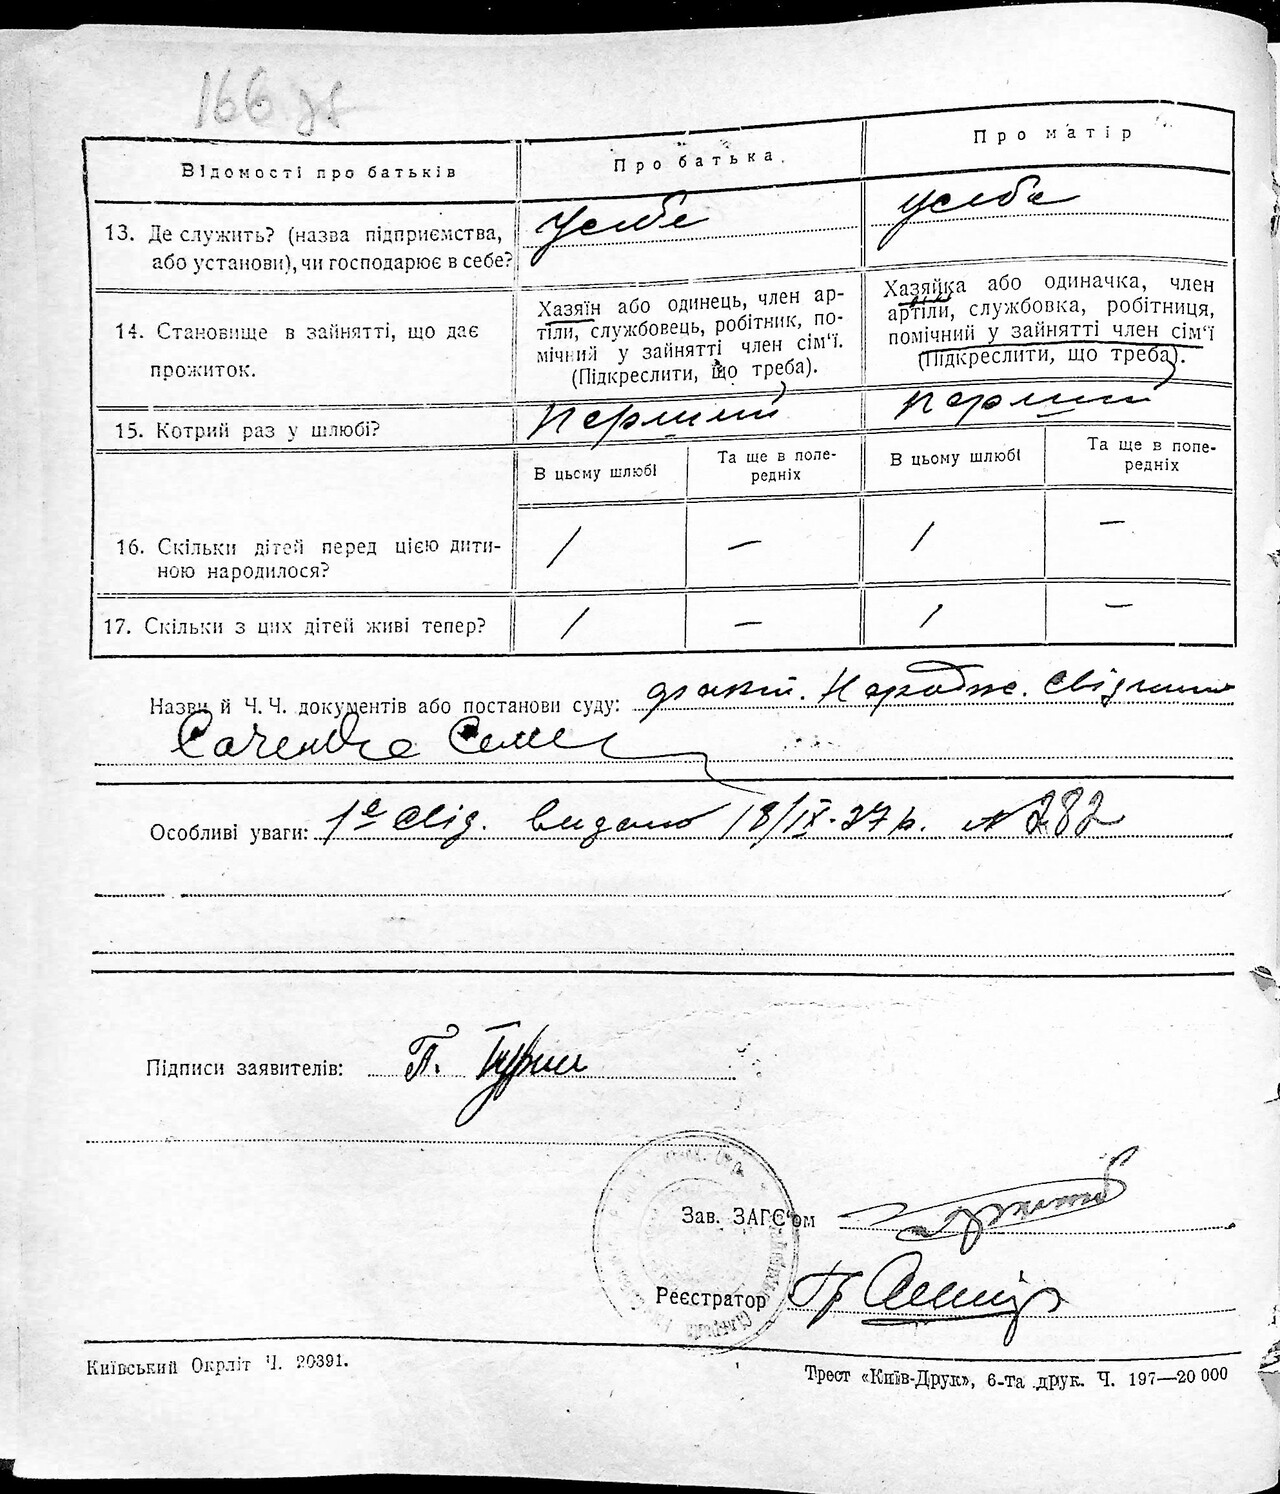 166
Відомості про батьків
Про батька
Про матір
13. Де служить? (назва підприємства,
або установи), чи господарює в себе?
у себе
у себе
14. Становище в зайнятті, що дає
прожиток.
Хазяїн або одинець, член ар-
тіли, службовець, робітник, по-
мічний у зайнятті член сім'ї.
(Підкреслити, що треба).
Хазяйка або одиначка, член
артіли, службовка, робітниця,
помічний у зайнятті член сім'ї
(Підкреслити, що треба).
15. Котрий раз у шлюбі?
перший
перший
В цьому шлюбі
Та ще в попе-
редніх
В цьому шлюбі
Та ще в попе-
редніх
16. Скільки дітей перед цією дити-
ною народилося?
1 — 1 —
17. Скільки з цих дітей живі тепер?
1 — 1 —
Назви й Ч. Ч. документів або постанови суду: Народж.
Особливі уваги: 1е свід. видано 18/IX-27 р. № 282
Підписи заявителів: П.
Зав. ЗАГС'ом
Реєстратор
Київський Окрліт Ч. 20391.
Трест «Київ-Друк», 6-та друк. Ч. 197—20 000